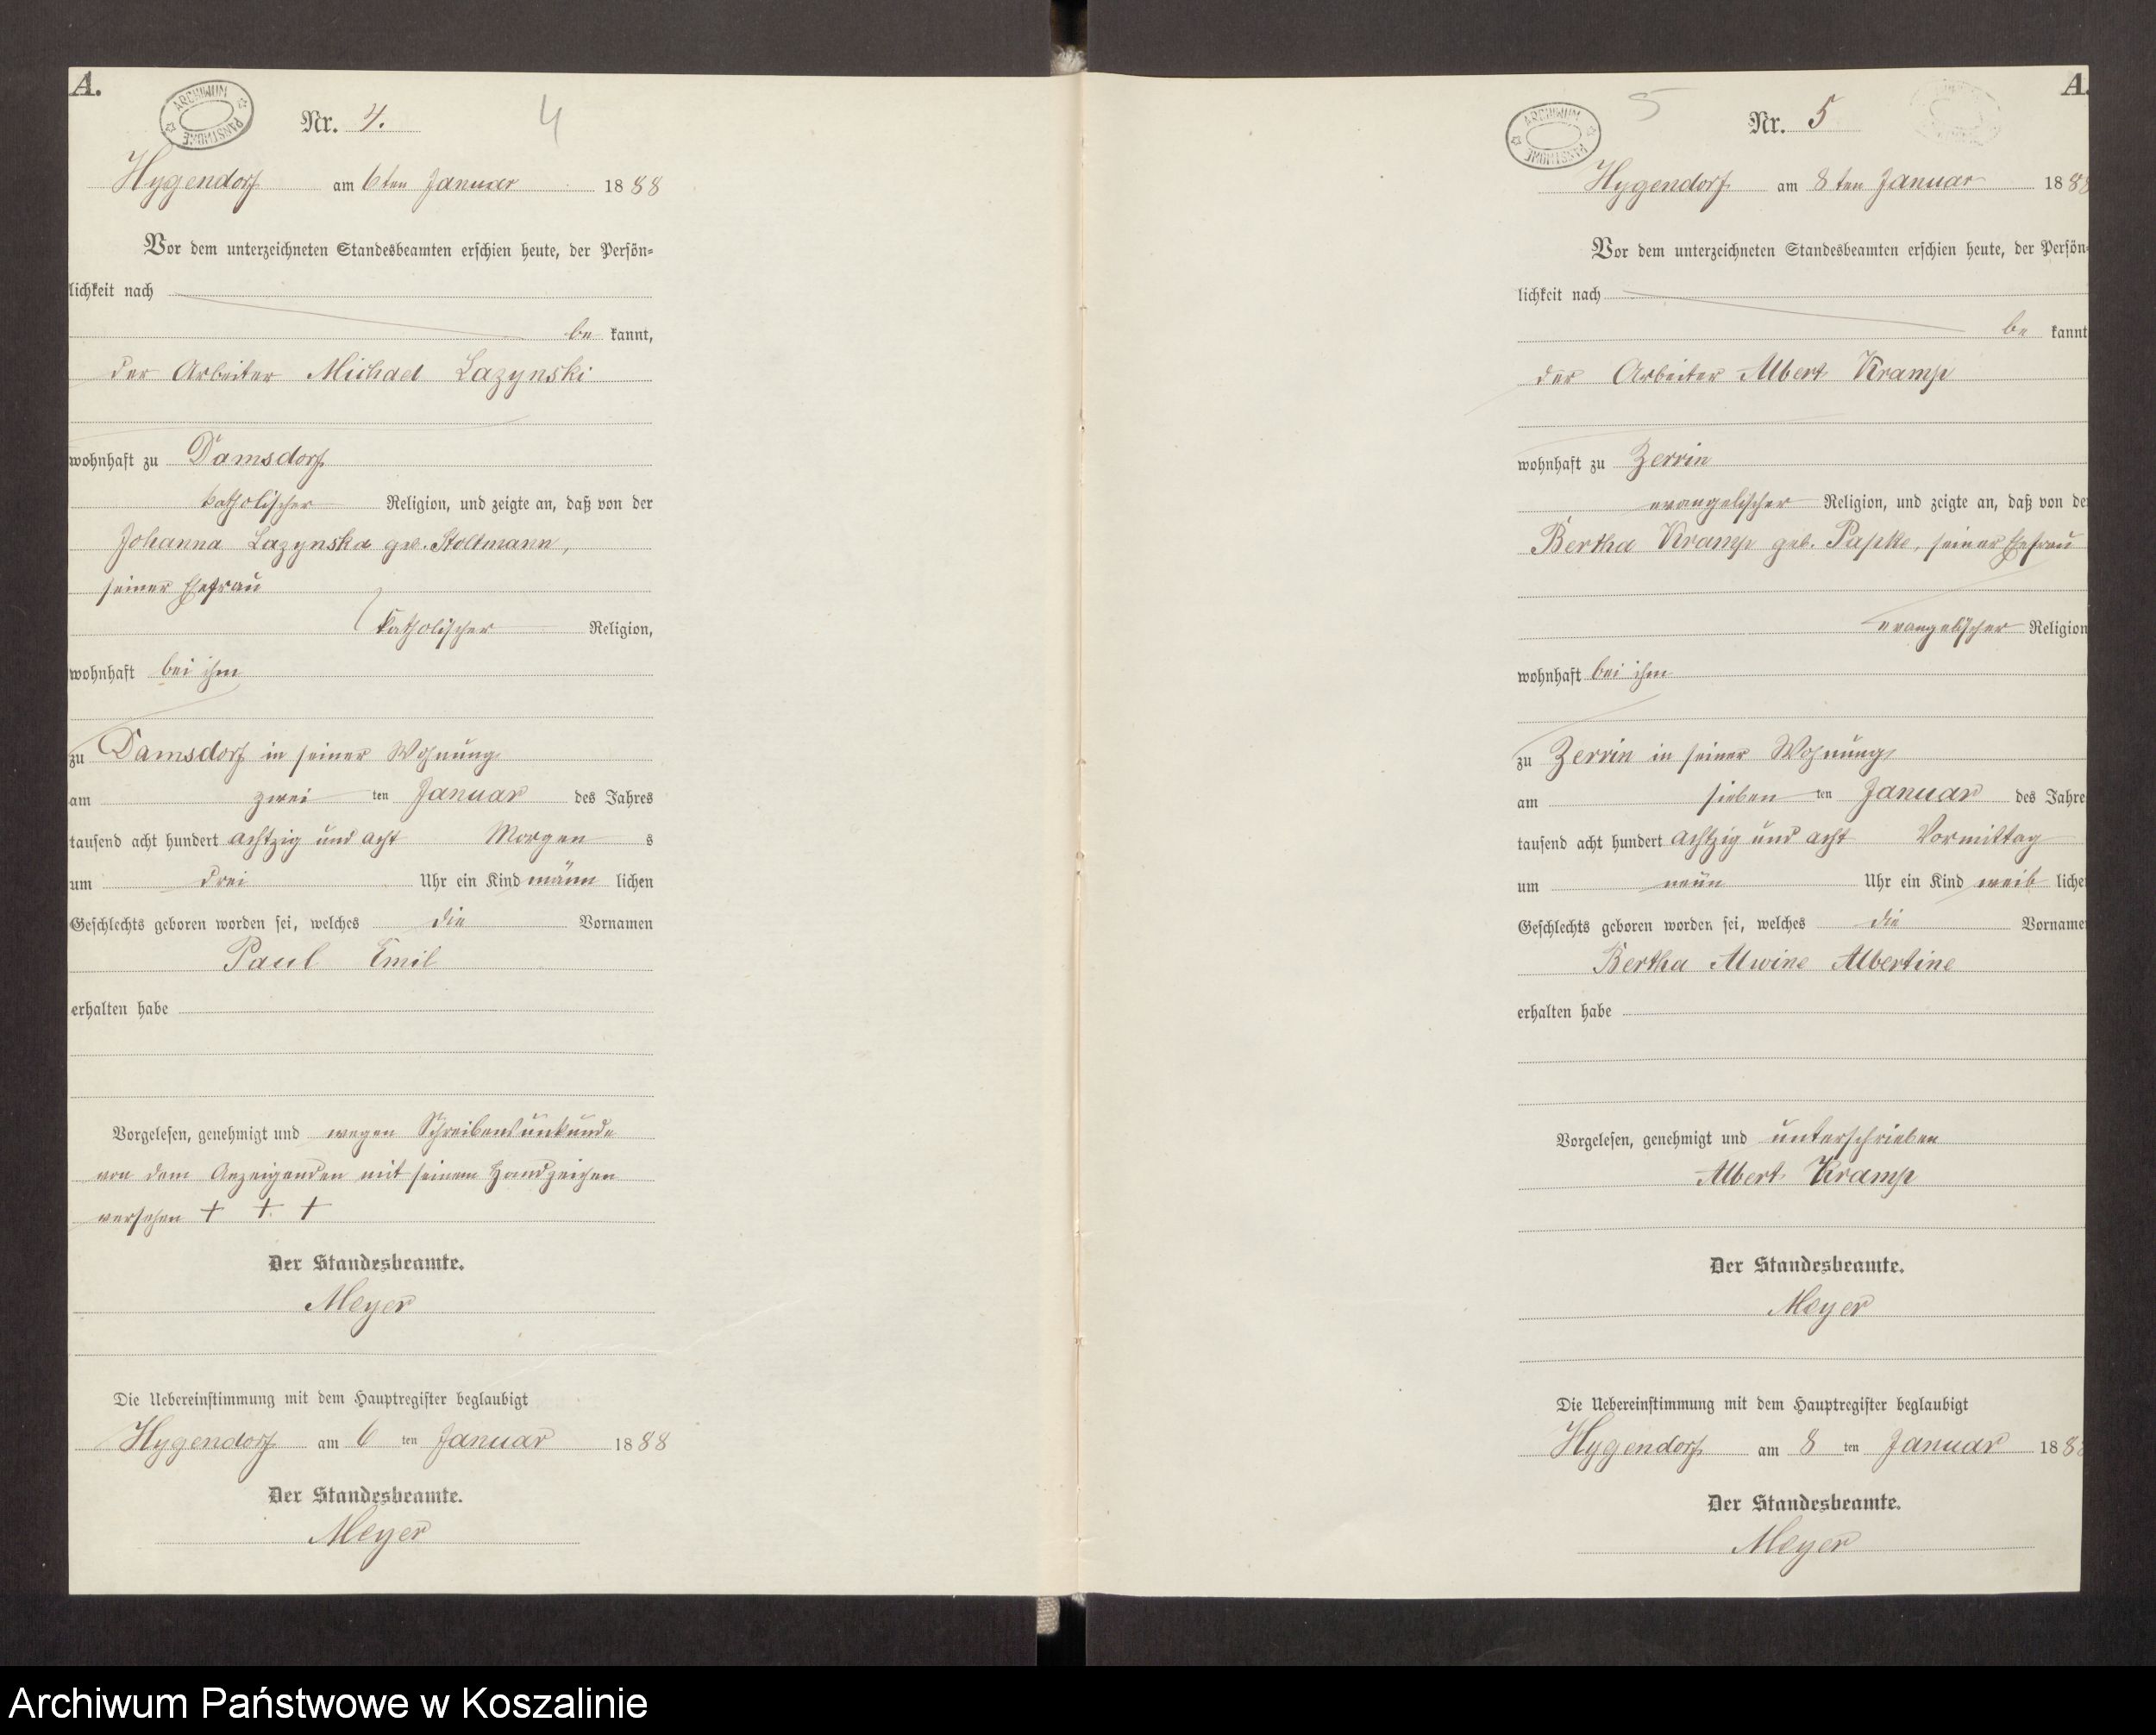 A.
ARCHIWUM PAŃSTWOWE
Nr. 4.
4
Hygendorf am 6ten Januar 1888
Vor dem unterzeichneten Standesbeamten erschien heute, der Persön=
lichkeit nach
be kannt,
der Arbeiter Michael Lazynski
wohnhaft zu Damsdorf
katholischer Religion, und zeigte an, daß von der
Johanna Lazynska geb. Stoltmann,
seiner Ehefrau
katholischer Religion,
wohnhaft bei ihm
zu Damsdorf in seiner Wohnung
am zwei ten Januar des Jahres
tausend acht hundert achtzig und acht Morgen s
um drei Uhr ein Kind männ lichen
Geschlechts geboren worden sei, welches die Vornamen
Paul Emil
erhalten habe
Vorgelesen, genehmigt und wegen Schreibensunkunde
von dem Anzeigenden mit seinem Handzeichen
versehen + + +
Der Standesbeamte.
Meyer
Die Uebereinstimmung mit dem Hauptregister beglaubigt
Hygendorf am 6 ten Januar 1888
Der Standesbeamte.
Meyer
A.
ARCHIWUM PAŃSTWOWE
5
Nr. 5
Hygendorf am 8ten Januar 1888
Vor dem unterzeichneten Standesbeamten erschien heute, der Persön=
lichkeit nach
be kannt
der Arbeiter Albert Kramp
wohnhaft zu Zerrin
evangelischer Religion, und zeigte an, daß von de
Bertha Kramp geb. Papke, seiner Ehefrau
evangelischer Religion
wohnhaft bei ihm
zu Zerrin in seiner Wohnung
am sieben ten Januar des Jahre
tausend acht hundert achtzig und acht Vormittag
um neun Uhr ein Kind weib liche
Geschlechts geboren worden sei, welches die Vorname
Bertha Alwine Albertine
erhalten habe
Vorgelesen, genehmigt und unterschrieben
Albert Kramp
Der Standesbeamte.
Meyer
Die Uebereinstimmung mit dem Hauptregister beglaubigt
Hygendorf am 8 ten Januar 188
Der Standesbeamte.
Meyer
Archiwum Państwowe w Koszalinie